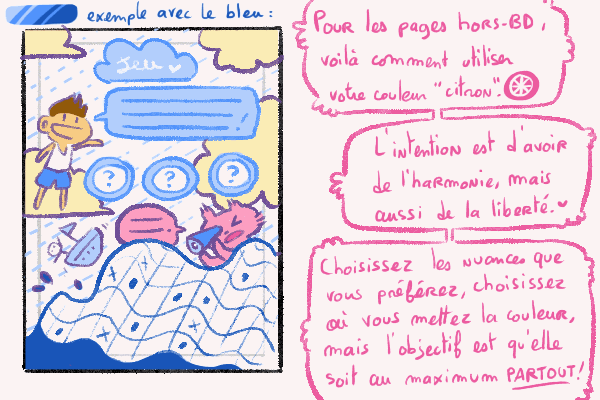 exemple avec le bleu :
Jeu
?
?
?
Pour les pages hors-BD,
voilà comment utiliser
votre couleur "citron".
L'intention est d'avoir
de l'harmonie, mais
aussi de la liberté.
Choisissez les nuances que
vous préférez, choisissez
où vous mettez la couleur,
mais l'objectif est qu'elle
soit au maximum PARTOUT!